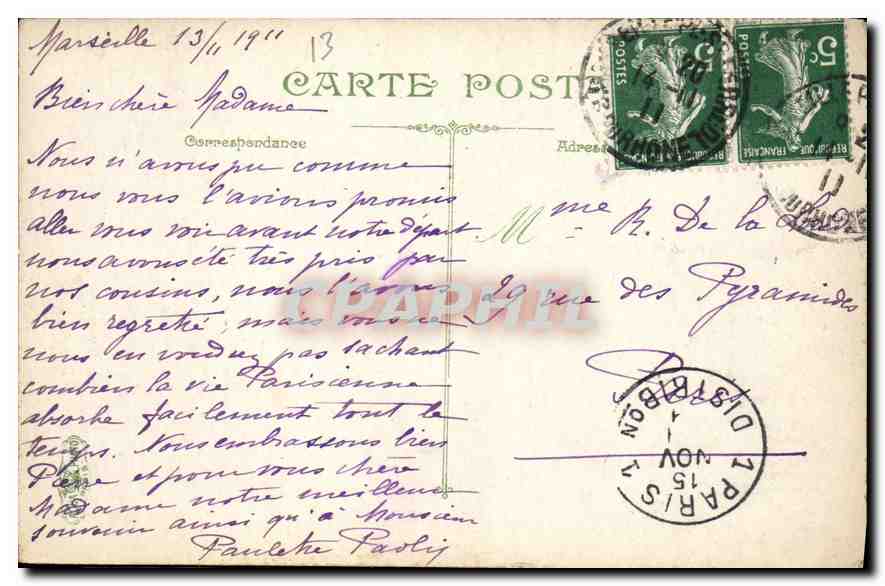 Marseille 13/11 1911
13
CARTE POST
Bien chère Madame
Correspondance
Adres
Nous n'avons pu comme
nous vous l'avions promis
aller vous voir avant notre départ
nous avons été très pris par
nos cousins, nous l'avons
bien regretté, mais vous ne
nous en voudrez pas sachant
combien la vie Parisienne
absorbe facilement tout le
temps. Nous embrassons bien
Pierre et pour vous chère
Madame notre meilleur
souvenir ainsi qu'à Monsieur
Paulette Paoli
Mme R. De la
29 rue des Pyramides
Paris
5c
POSTES
REPUBLIQUE FRANÇAISE
5c
POSTES
14 -11
11
1 PARIS 1
DISTRIBON
15
NOV
11
CPAPHIL